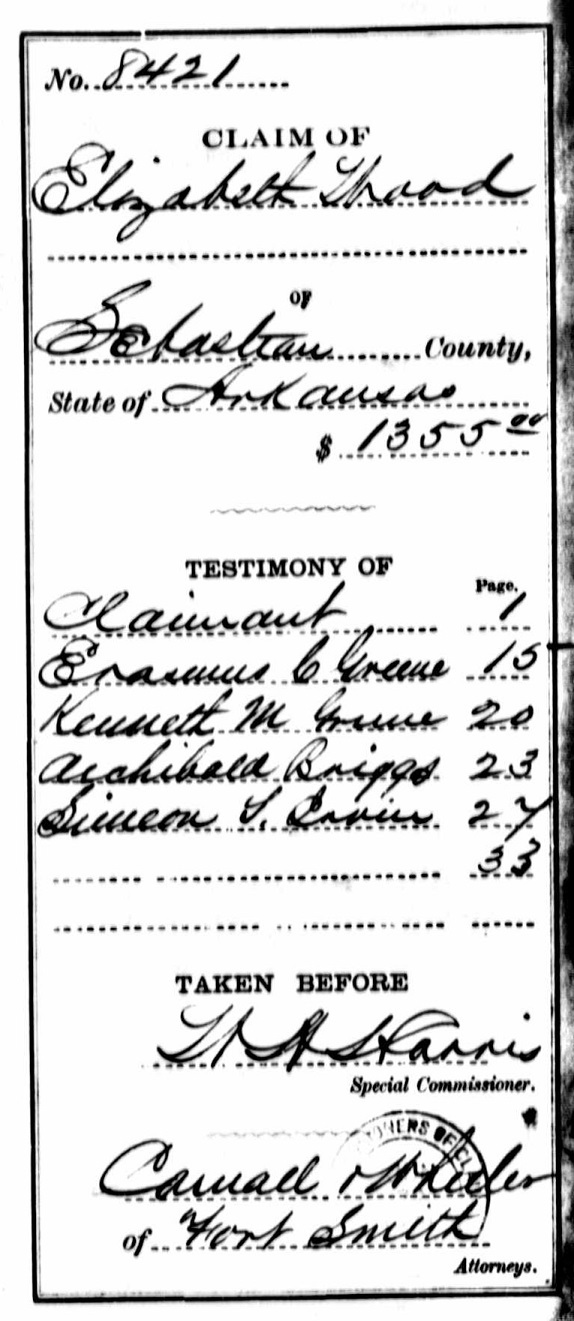 No. 8421
CLAIM OF
Elizabeth Wood
OF
Sebastian County,
State of Arkansas
$ 1355 00
TESTIMONY OF
Page.
Claimant 1
Erasmus C Greene 15
Kenneth M Greene 20
Archibald Briggs 23
Simeon S. 27
33
TAKEN BEFORE
W H Harris
Special Commissioner.
OF
Carnall & Wheeler
of Fort Smith
Attorneys.